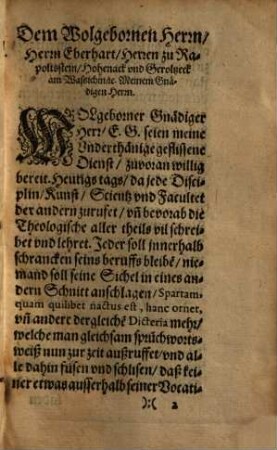 Dem Wolgebornen Herrn/
Herrn Eberhart/ Herren zu Ra-
poltzstein/ Hohenack vnd Geroltzeck
am Wassichin/ɾc. Meinem Gnä-
digen Herm.
WOLgeborner Gnädiger
Herr/ E. G. seien meine
Vnderthänige geflissene
Dienst/ zuvoran willig
bereit. Heutigs tags/ da jede Disci-
plin/ Kunst/ Scientz vnd Facultet
der andern zurufet/ vñ bevorab die
Theologische aller theils vil schrei-
bet vnd lehret. Jeder soll innerhalb
schrancken seins beruffs bleibẽ/ nie-
mand soll seine Sichel in eines an-
dern Schnitt anschlagen/ Spartam-
quam quilibet nactus est, hanc ornet,
vñ andere dergleichẽ Dicteria mehr/
welche man gleichsam sprüchworts-
weiß nun zur zeit außruffet/ vnd al-
le dahin fusen vnd schlisen/ daß kei-
ner etwas ausserhalb seiner Vocati-
):( 2